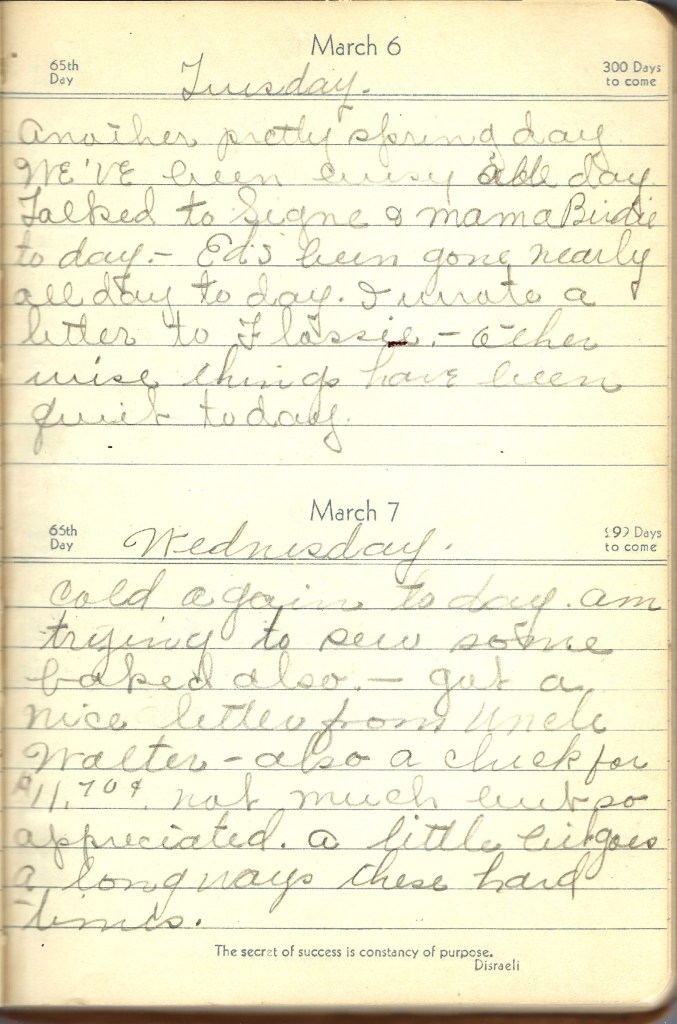 March 6
65th
Day
Tuesday.
300 Days
to come
Another pretty spring day
WE'VE been busy able day.
Talked to Signe & mama Birdie
to day. — Ed's been gone nearly
all day to day. I wrote a
letter to Flossie. — other
wise things have been
quiet today.
March 7
66th
Day
Wednesday.
299 Days
to come
Cold again to day. am
trying to sew some
baked also. — got a
nice letter from Uncle
Walter — also a check for
$11.70¢. not much but so
appreciated. a little bit goes
a long ways these hard
times.
The secret of success is constancy of purpose.
Disraeli